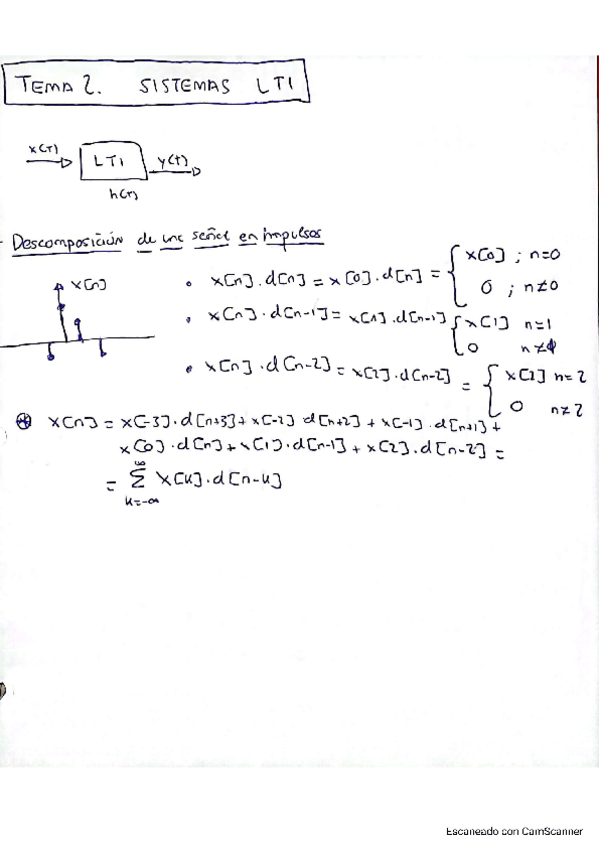 TEMA 2. SISTEMAS LTI
x(t) LTI y(t)
h(t)
- Descomposición de una señal en impulsos
x[n]
• x[n].d[n] = x[0].d[n] = { x[0] ; n=0
0 ; n≠0
• x[n].d[n-1] = x[1].d[n-1] { x[1] n=1
0 n≠1
• x[n].d[n-2] = x[2].d[n-2] = { x[2] n=2
0 n≠2
x[n] = x[-3].d[n+3] + x[-2] d[n+2] + x[-1].d[n+1] +
x[0].d[n] + x[1].d[n-1] + x[2].d[n-2] =
= ∞ Σ k=-∞ x[k].d[n-k]
Escaneado con CamScanner